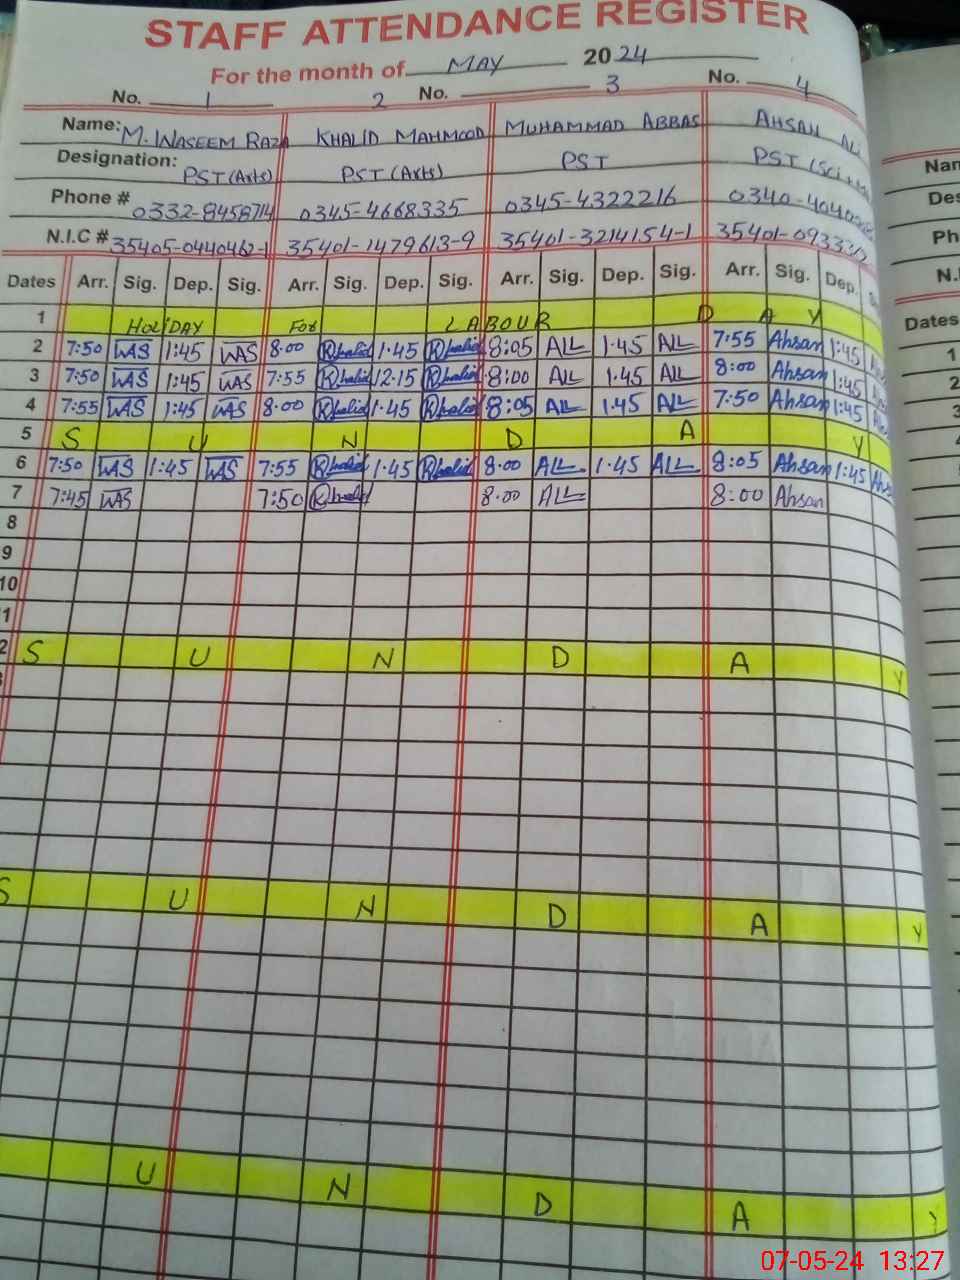 STAFF ATTENDANCE REGISTER
For the month of MAY 2024
No. 1 2 No. 3 No. 4
Name: M. WASEEM RAZA KHALID MAHMOOD MUHAMMAD ABBAS AHSAN ALI
Designation: PST (Arts) PST (Arts) PST PST (Sci
Phone # 0332-8458714 0345-4668335 0345-4322216 0340-4040
N.I.C # 35405-0440462-1 35401-1479613-9 35401-3214154-1 35401-0933
Dates Arr. Sig. Dep. Sig. Arr. Sig. Dep. Sig. Arr. Sig. Dep. Sig. Arr. Sig. Dep.
1 HOLIDAY FOR LABOUR D A Y
2 7:50 WAS 1:45 WAS 8.00 Khalid 1.45 Khalid 8:05 ALL 1.45 ALL 7:55 Ahsan 1:45
3 7:50 WAS 1:45 WAS 7:55 Khalid 12.15 Khalid 8:00 ALL 1.45 ALL 8:00 Ahsan 1:45
4 7:55 WAS 1:45 WAS 8.00 Khalid 1.45 Khalid 8:05 ALL 1.45 ALL 7:50 Ahsan 1:45
5 S U N D A Y
6 7:50 WAS 1:45 WAS 7:55 Khalid 1.45 Khalid 8.00 ALL 1.45 ALL 8:05 Ahsan 1:45
7 7:45 WAS 7:50 Khalid 8.00 ALL 8:00 Ahsan
8
9
10
1
2 S U N D A Y
S U N D A Y
U N D A Y
Nan
Des
Ph
N.I
Dates
1
2
3
07-05-24 13:27